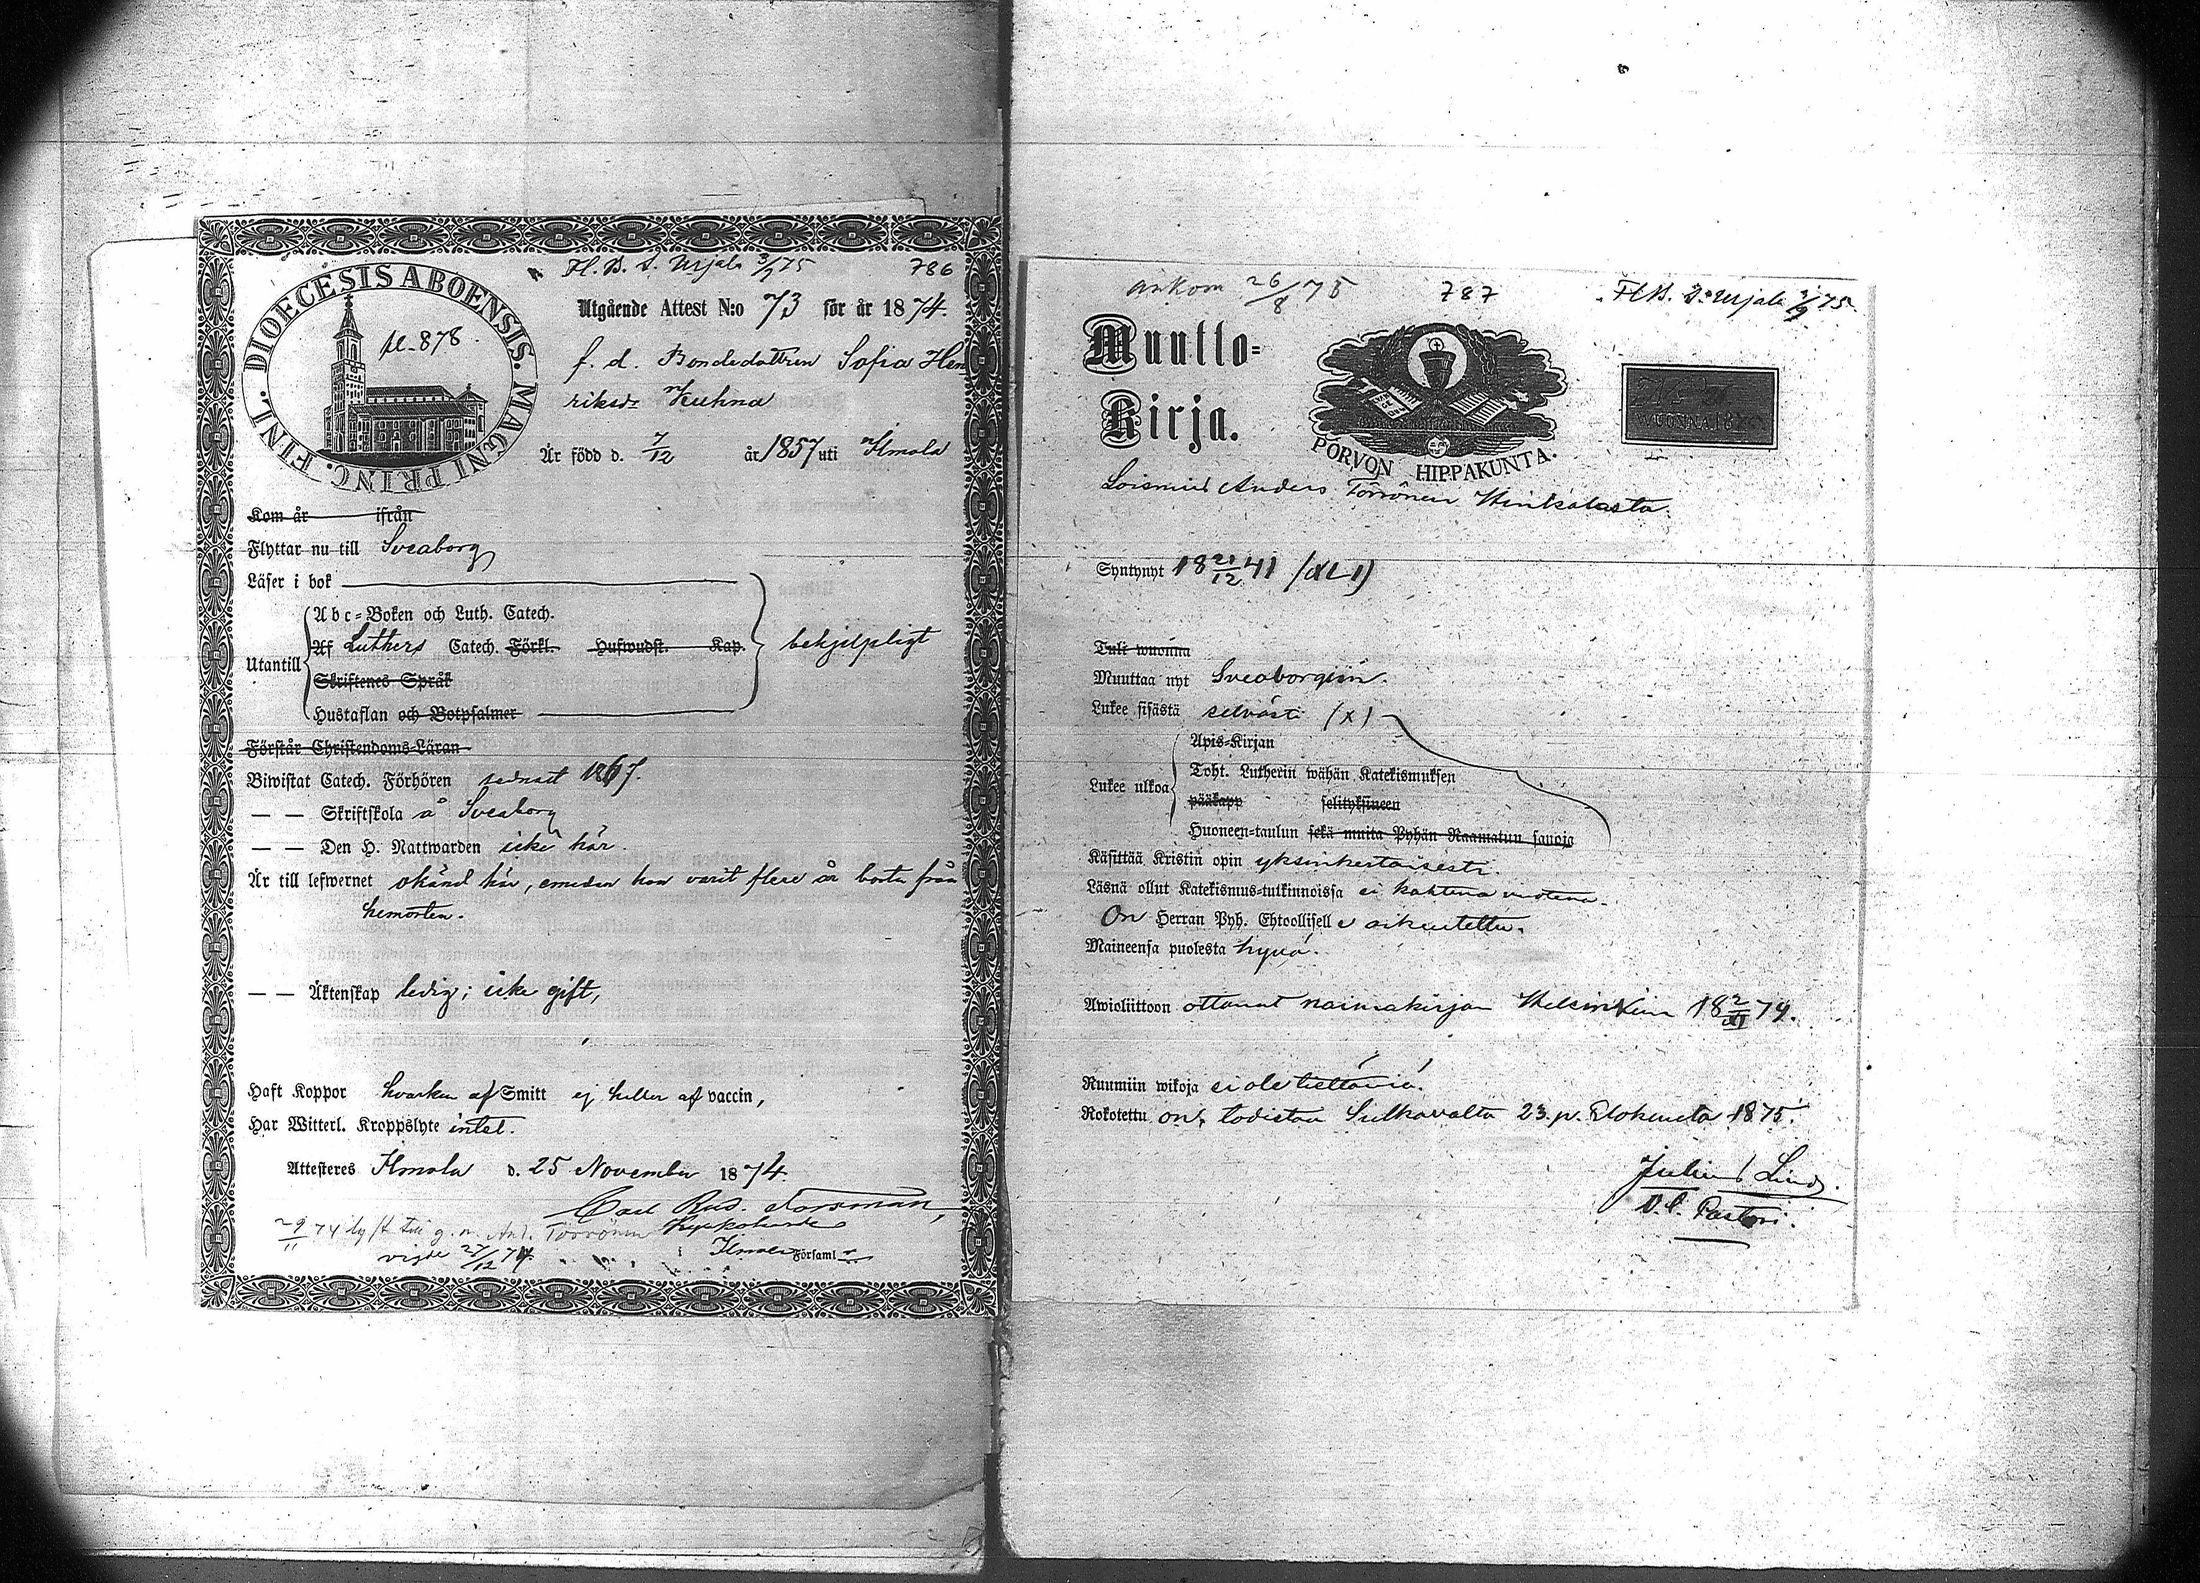 786
DIOECESIS ABOENSIS. MAGNI PRINC. FINL.
p. 878.
Utgående Attest N:o 73 för år 1874.
f. d. Bondedottren Sofia Hen
riksdr Kuhna
Är född d. 7/12 år 1857 uti Ilmola
Kom år ifrån
Flyttar nu till Sveaborg
Läser i bok
Abc-Boken och Luth. Catech.
Utantill Af Luthers Catech. Förkl. Hufwudst. Kap. behjelpligt
Skriftenes Språk
Hustaflan och Botpsalmer
Förstår Christendoms-Läran
Biwistat Catech. Förhören senast 1867.
— — Skriftskola å Sveaborg
— — Den H. Nattwarden icke här.
Är till lefwernet okänd här, emedan hon varit flere år borta från
hemorten.
— — Äktenskap ledig; icke gift,
Haft Koppor hvarken af Smitt ej heller af vaccin,
Har Witterl. Kroppslyte intet.
Attesteres Ilmola d. 25 November 1874.
Carl Rud. Forsman,
Kyrkoherde
29/11 74 lyst till g. m. And. Törrönen
vigde 27/12 74.
Ilmola Församl
ankom 26/8 75
787
Muutto-
Kirja.
PORVON HIPPAKUNTA.
WUONNA 18
Loismies Anders Törrönen Winkalasta.
Syntynyt 18 21/12 41 (XLI)
Tuli wuonna
Muuttaa nyt Sveaborgiin.
Lukee sisästä selvästi (x)
Apis-Kirjan
Lukee ulkoa Toht. Lutherin wähän Katekismuksen
pääkapp selityksineen
Huoneen-taulun sekä muita Pyhän Raamatun sanoja
Käsittää Kristin opin yksinkertaisesti.
Läsnä ollut Katekismus-tutkinnoissa ei kahtena vuotena.
On Herran Pyh. Ehtoollisell e oikeutettu.
Maineensa puolesta hyvä.
Awioliittoon ottanut naimakirjan Helsinkiin 18 2/XI 74.
Ruumiin wikoja ei ole tiettäviä.
Rokotettu on, todistaa Sulkavalta 23 p. Elokuuta 1875.
Julius Lind.
V. t. Pastori.